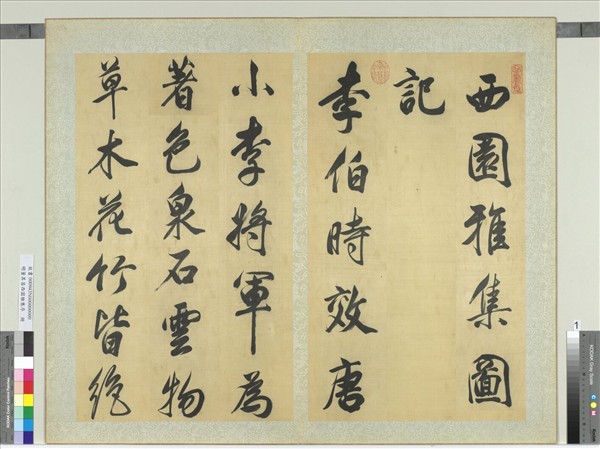 西園雅集圖
記
李伯時效唐
小李將軍為
著色泉石雲物
草木花竹皆絶
1